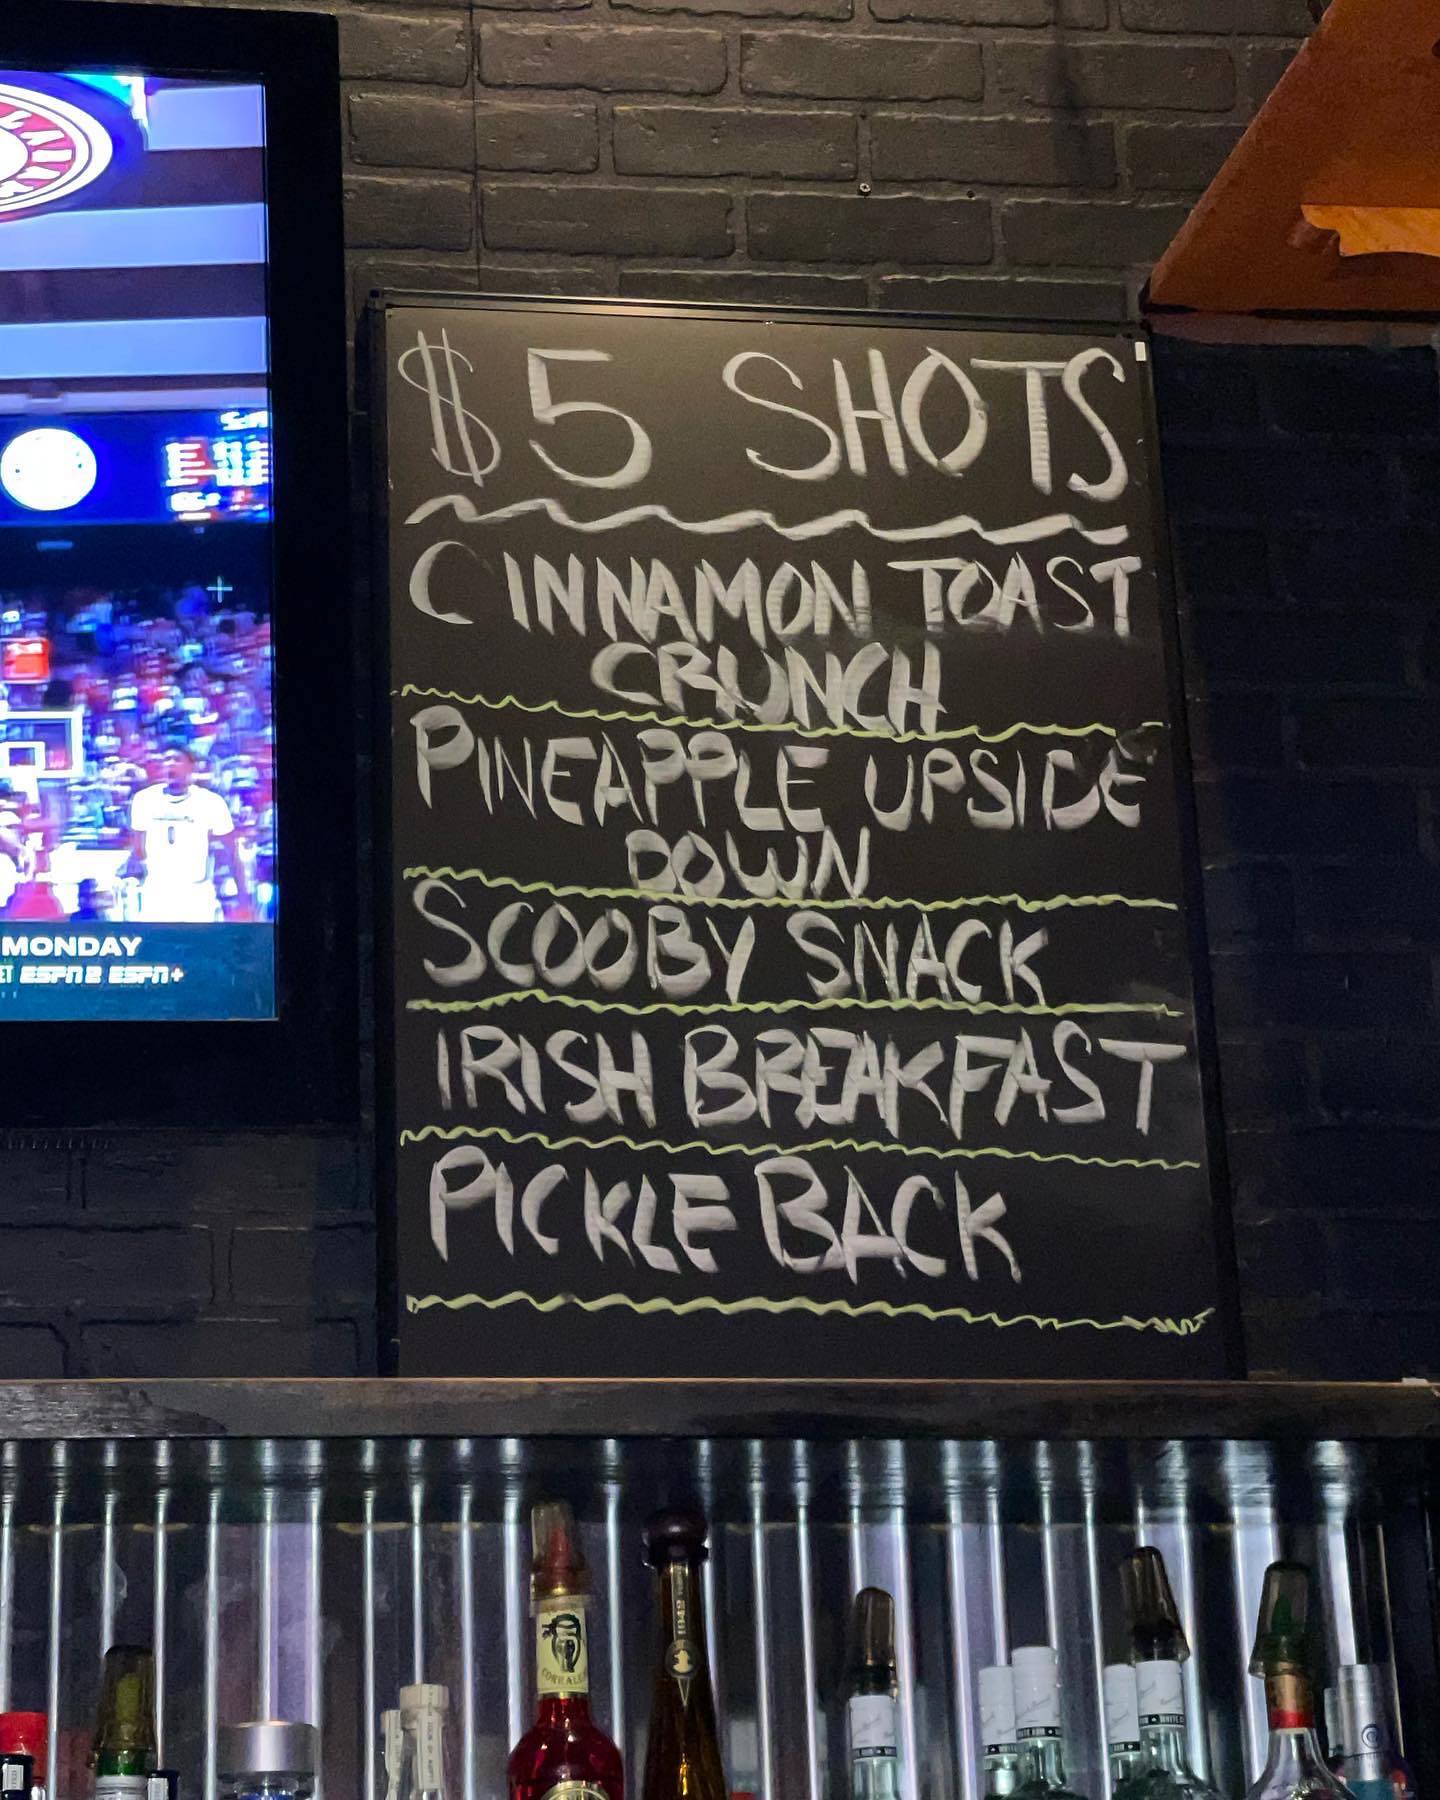 $5 SHOTS
CINNAMON TOAST
CRUNCH
PINEAPPLE UPSIDE
DOWN
SCOOBY SNACK
IRISH BREAKFAST
PICKLE BACK
MONDAY
ET ESPN2 ESPN+
0
1942
CORRALEJO